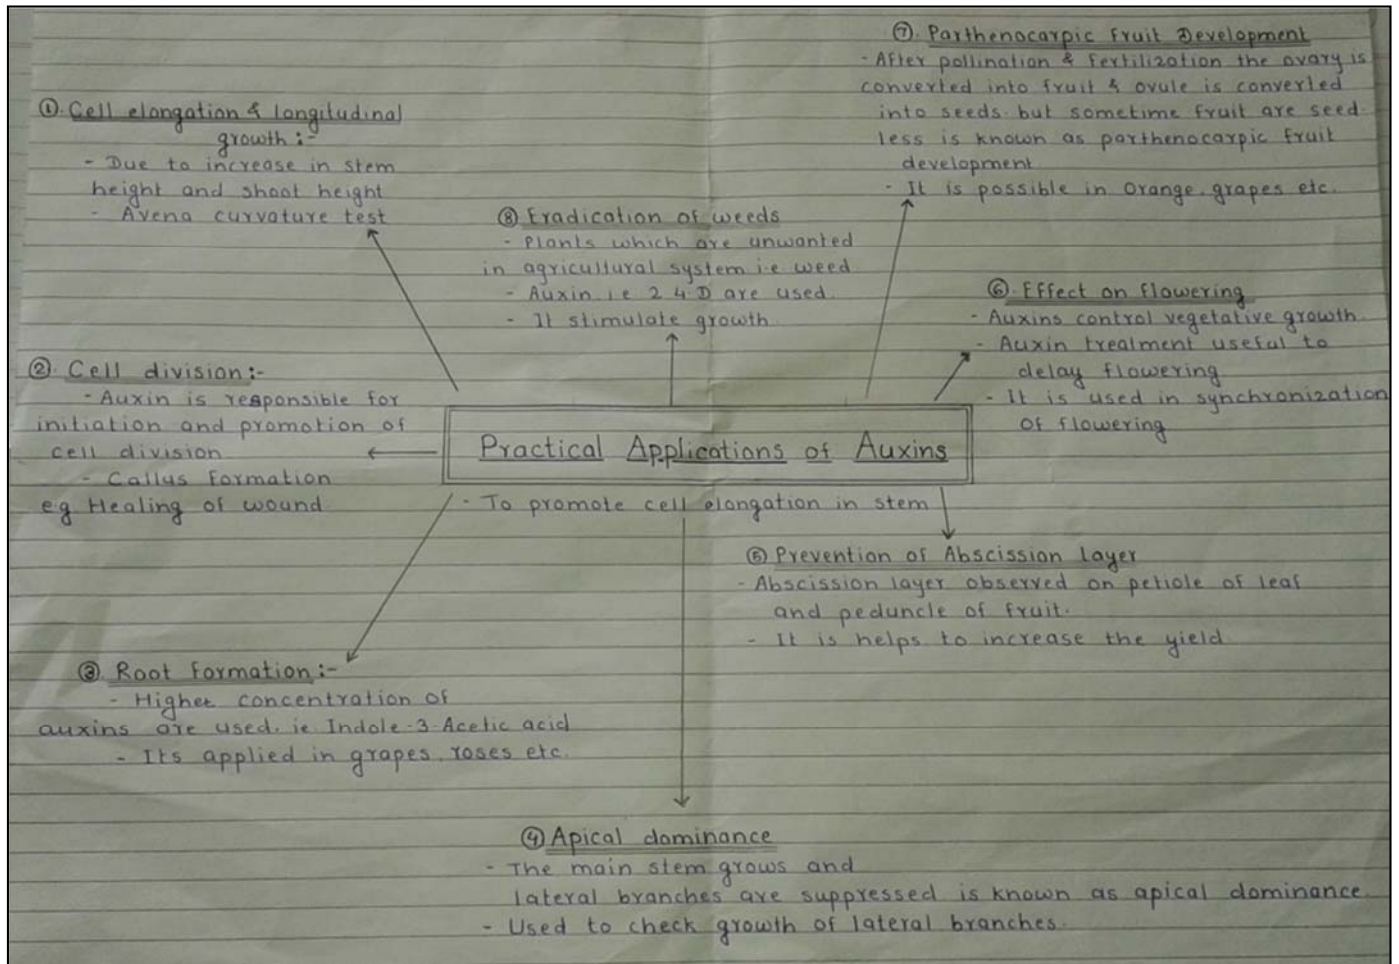 Practical Applications of Auxins
- To promote cell elongation in stem
①. Cell elongation & longitudinal
growth :-
- Due to increase in stem
height and shoot height
- Avena curvature test
②. Cell division :-
- Auxin is responsible for
initiation and promotion of
cell division
- Callus formation
e.g Healing of wound.
③. Root formation :-
- Higher concentration of
auxins are used. ie. Indole-3-Acetic acid
- Its applied in grapes, roses etc.
④ Apical dominance
- The main stem grows and
lateral branches are suppressed is known as apical dominance.
- Used to check growth of lateral branches.
⑤ Prevention of Abscission layer
- Abscission layer observed on petiole of leaf
and peduncle of fruit.
- It is helps to increase the yield.
⑥. Effect on flowering
- Auxins control vegetative growth.
- Auxin treatment useful to
delay flowering
- It is used in synchronization
of flowering
⑦. Parthenocarpic fruit Development
- After pollination & fertilization the ovary is
converted into fruit & ovule is converted
into seeds. but sometime fruit are seed
less is known as parthenocarpic fruit
development.
- It is possible in Orange, grapes etc.
⑧ Eradication of weeds
- Plants which are unwanted
in agricultural system i.e. weed
- Auxin i.e 2 4.D are used.
- It stimulate growth.